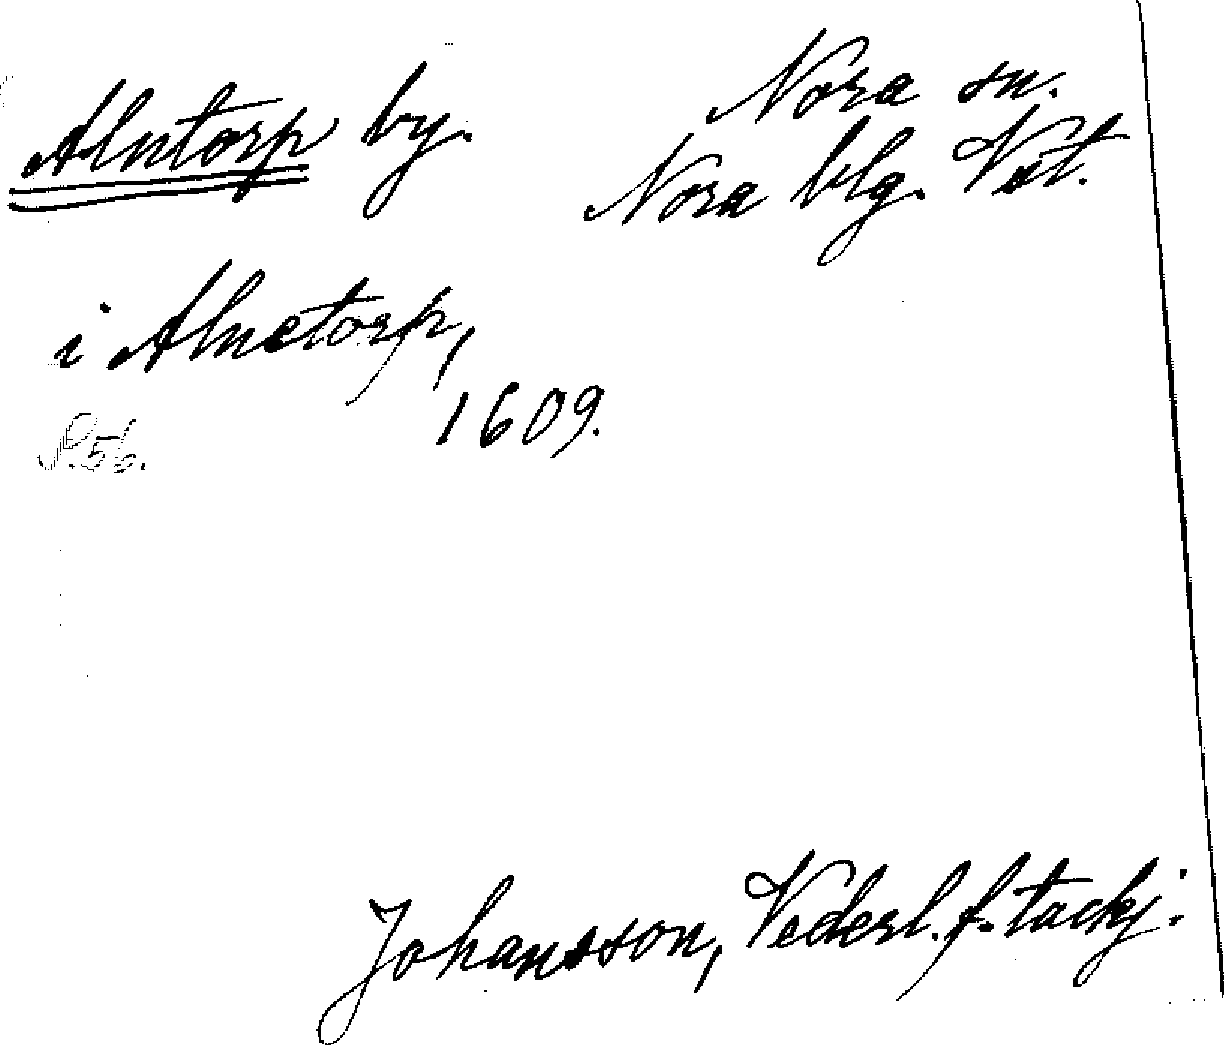 Alntorp by.
Nora sn.
Nora blg. Vst.
i Alnetorp,
1609.
S. 56.
Johansson, Vederl. f. tackj.